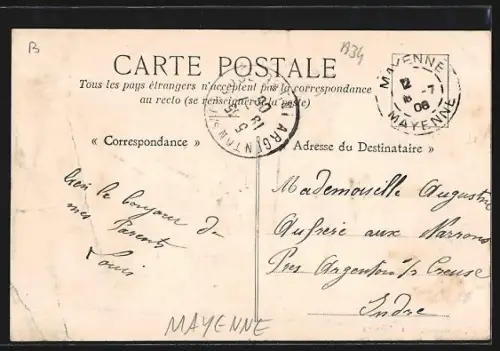 B
1334
CARTE POSTALE
Tous les pays étrangers n'acceptent pas la correspondance
au recto (se renseigner à la poste)
MAYENNE
12
-7
06
MAYENNE
« Correspondance »
Adresse du Destinataire »
bien le bonjour de
mes Parents
Louis
Mademoiselle Augustine
aux
Pres Argenton s/ Creuse
Indre
MAYENNE